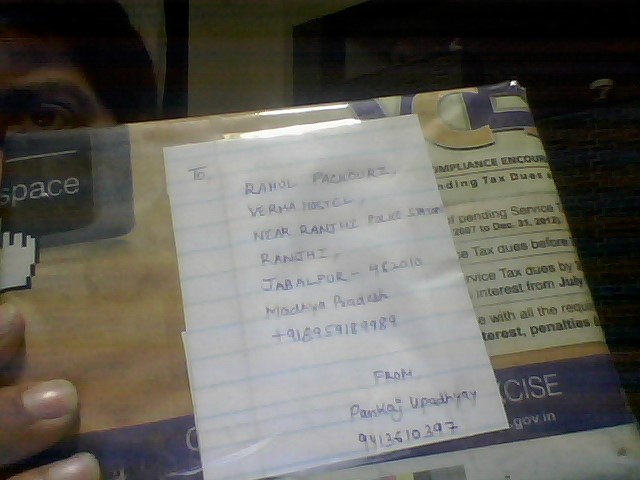 space
TO
RAHUL PACHOURI,
VERMA HOSTEL,
NEAR RANJHI POLICE STATION
RANJHI,
JABALPUR - 482010
Madhya Pradesh
+918959189989
FROM,
Pankaj Upadhyay
9413610397
VCE
OMPLIANCE ENCOUR
nding Tax Dues
pending Service T
2007 to Dec. 31, 2012)
e Tax dues before
rvice Tax dues by
interest from July
e with all the requ
terest, penalties
CISE
.gov.in